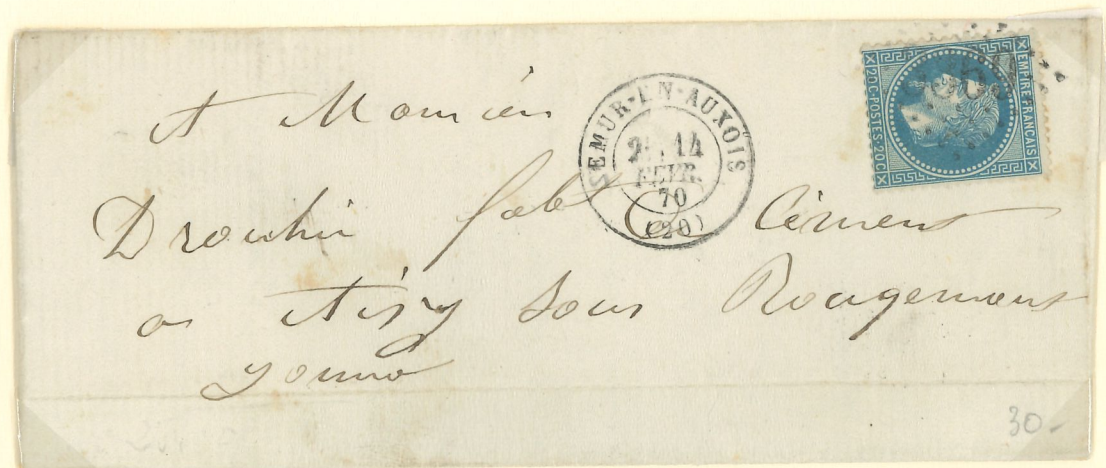 A Monsieur
Drouhin fabt Ciment
a Tisy sous Rougemont
Yonne
SEMUR-EN-AUXOIS
14
FEVR.
70
(20)
EMPIRE FRANCAIS
20C POSTES 20C
30-